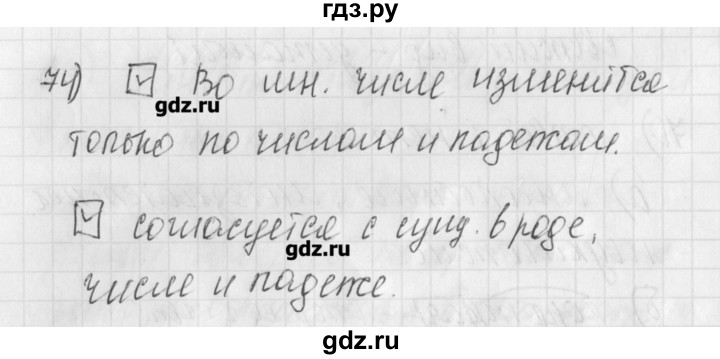 гдз.ру
74) ✓ Во мн. числе изменится
gdz.ru
только по числам и падежам.
✓ согласуется с сущ. в роде,
gdz.ru
числе и падеже.
gdz.ru